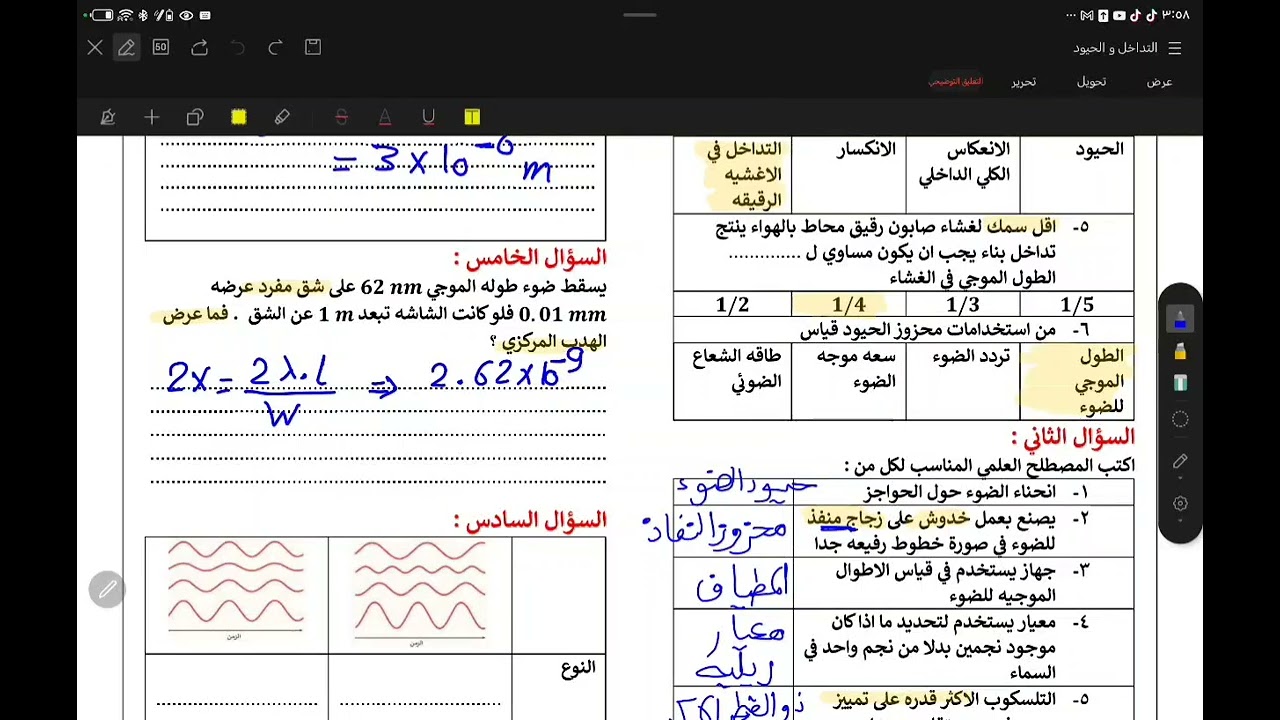 ٣:٥٨
التداخل و الحيود
50
عرض
تحويل
تحرير
التعليق التوضيحي
الحيود
الانعكاس الكلي الداخلي
الانكسار
التداخل في الاغشيه الرقيقه
٥- اقل سمك لغشاء صابون رقيق محاط بالهواء ينتج
تداخل بناء يجب ان يكون مساوي ل ..............
الطول الموجي في الغشاء
1/5
1/3
1/4
1/2
٦- من استخدامات محزوز الحيود قياس
الطول الموجي للضوء
تردد الضوء
سعه موجه الضوء
طاقه الشعاع الضوئي
السؤال الثاني :
اكتب المصطلح العلمي المناسب لكل من :
١- انحناء الضوء حول الحواجز
حيود الضوء
٢- يصنع بعمل خدوش على زجاج منفذ
للضوء في صورة خطوط رفيعه جدا
محزوز النفاذ
٣- جهاز يستخدم في قياس الاطوال
الموجيه للضوء
المطياف
٤- معيار يستخدم لتحديد ما اذا كان
موجود نجمين بدلا من نجم واحد في
السماء
معيار
ريليه
٥- التلسكوب الاكثر قدره على تمييز
= 3 x 10⁻⁶ m
السؤال الخامس :
يسقط ضوء طوله الموجي 62 nm على شق مفرد عرضه
0.01 mm فلو كانت الشاشه تبعد 1 m عن الشق . فما عرض
الهدب المركزي ؟
2x = 2λ.l / W ⇒ 2.62x10⁻⁹
السؤال السادس :
الزمن
الزمن
النوع